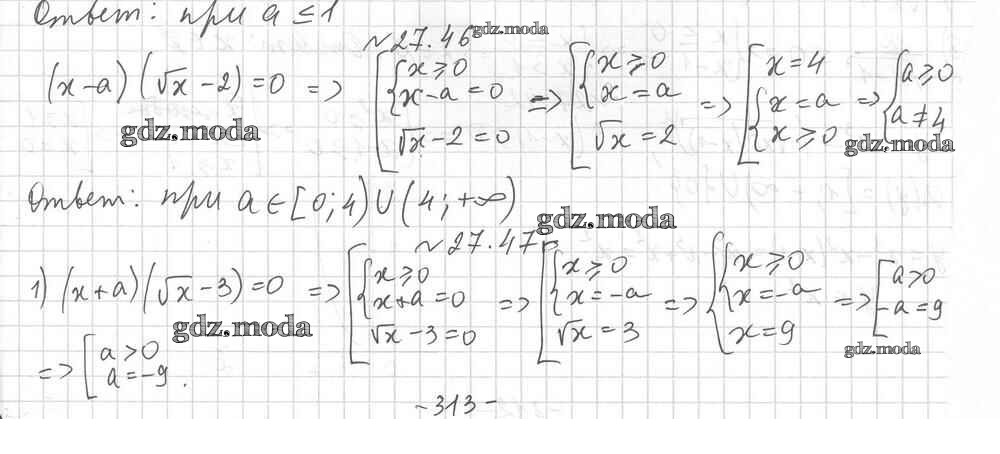 Ответ: при a ≤ 1
№27.46 gdz.moda
(x-a)(√x-2)=0 => [{x≥0 x-a=0 √x-2=0 => [{x≥0 x=a √x=2 => [x=4 {x=a x≥0 => {a≥0 a≠4
gdz.moda gdz.moda
Ответ: при a∈[0;4)∪(4;+∞)
gdz.moda
№27.47
1) (x+a)(√x-3)=0 => [{x≥0 x+a=0 √x-3=0 => [{x≥0 x=-a √x=3 => {{x≥0 x=-a x=9 => [a>0 -a=9
gdz.moda gdz.moda
=> [a>0 a=-9.
-313-